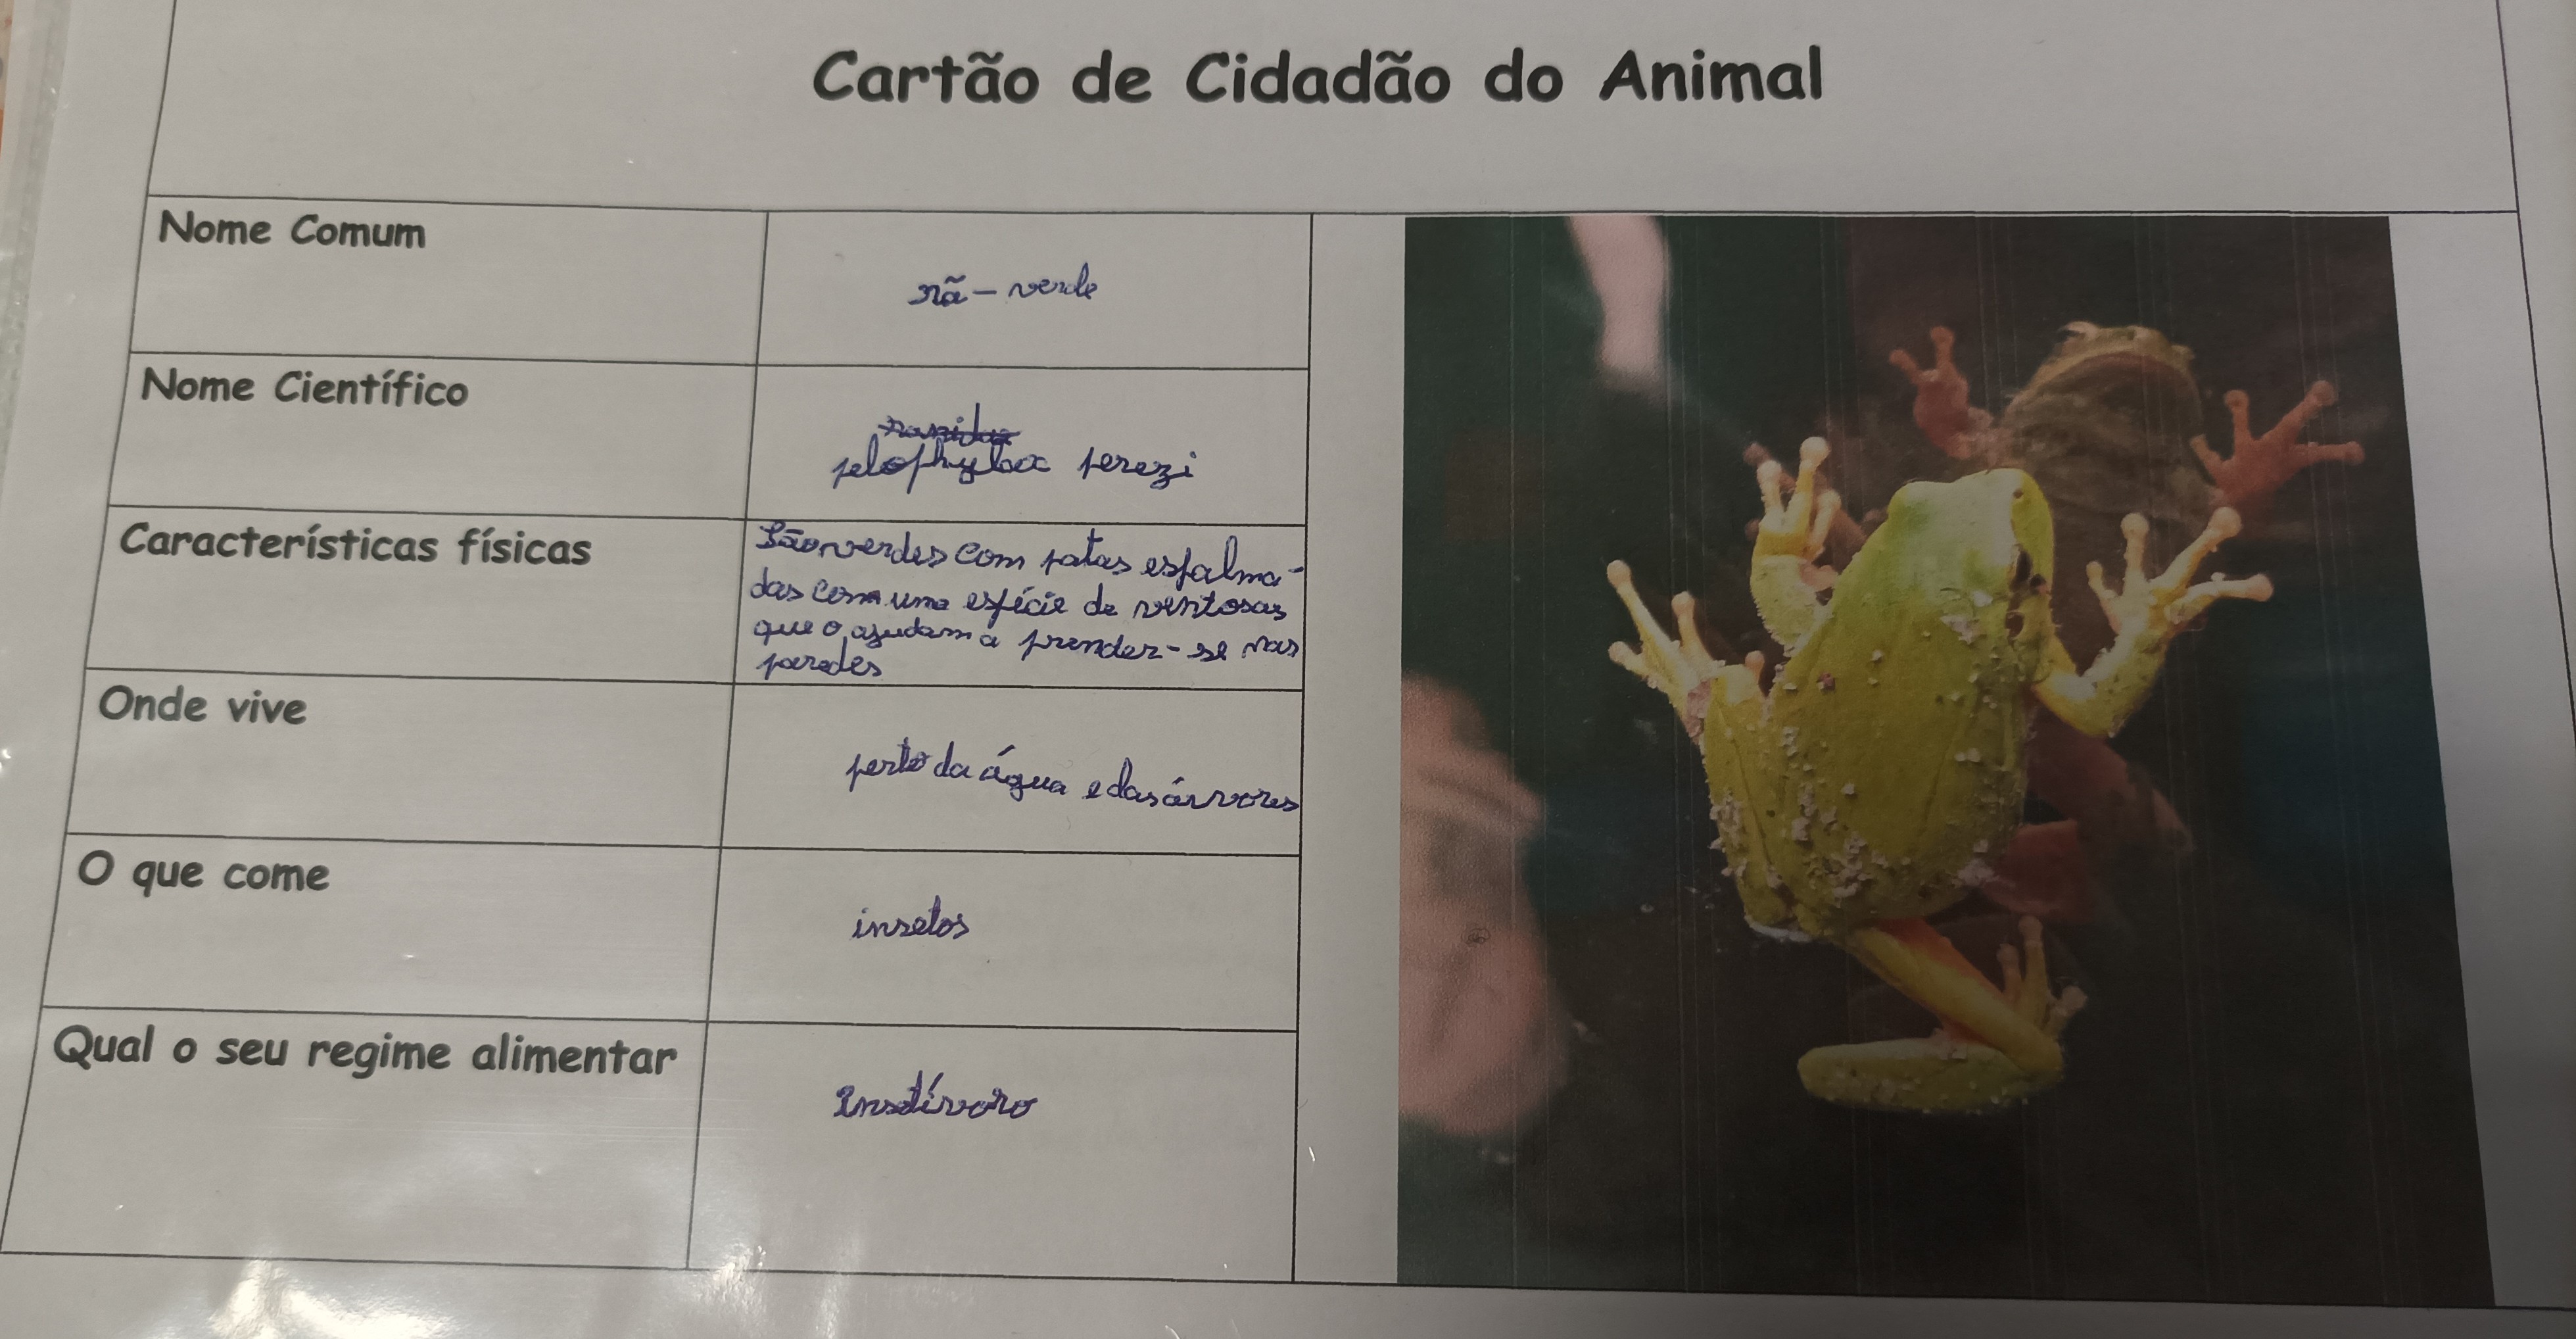 Cartão de Cidadão do Animal
Nome Comum
rã - verde
Nome Científico
ranidae
pelophylax perezi
Características físicas
São verdes com patas espalma-
das com uma espécie de ventosas
que o ajudam a prender-se nas
paredes
Onde vive
perto da água e das árvores
O que come
insetos
Qual o seu regime alimentar
Insetívoro